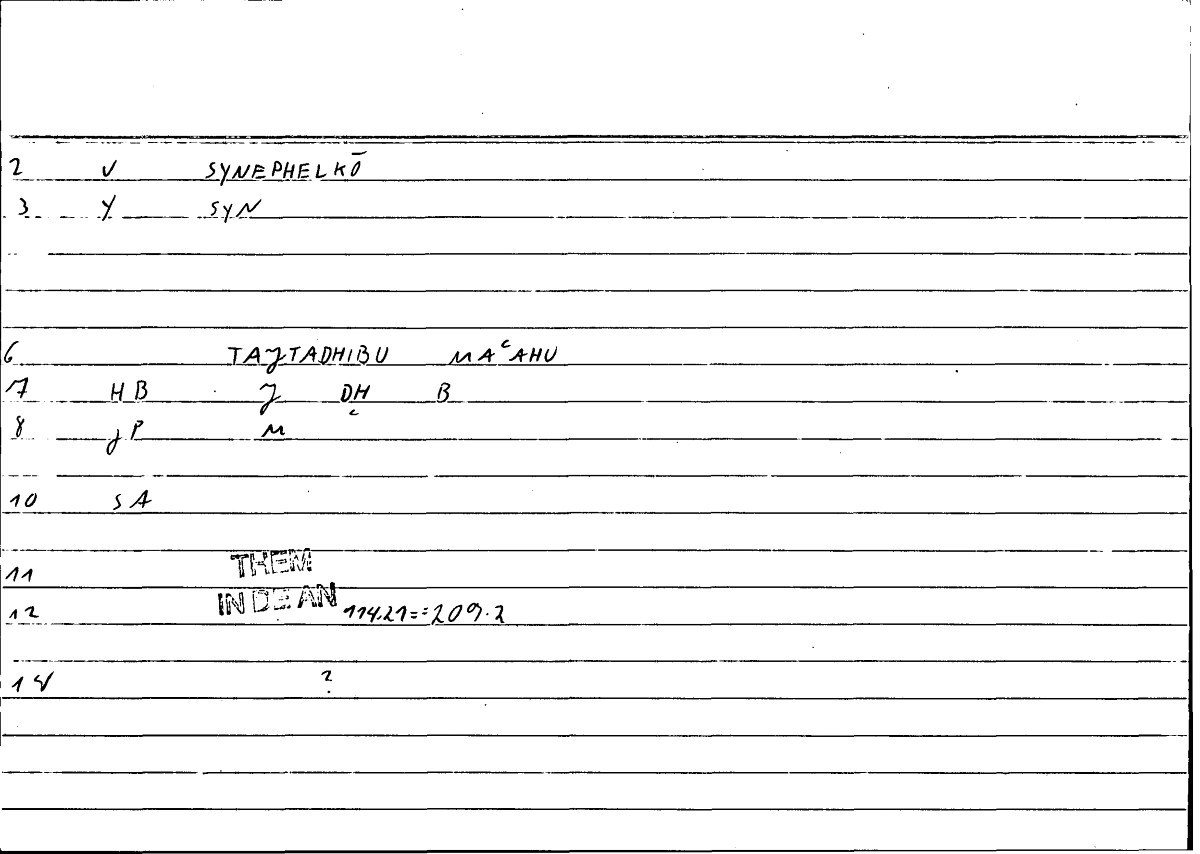 2 V SYNEPHELKŌ
3 Y SYN
6 TAJTADHIBU MAʿAHU
7 HB J DH B
8 JP M ʿ
10 SA
11 THEM
12 IN DE AN 114.21==209.2
14 ?